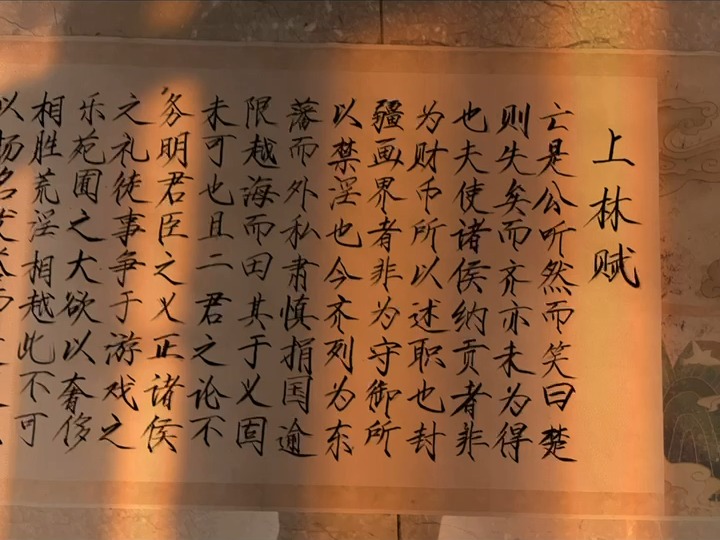 上林赋
亡是公听然而笑曰楚
则失矣而齐亦未为得
也夫使诸侯纳贡者非
为财币所以述职也封
疆画界者非为守御所
以禁淫也今齐列为东
藩而外私肃慎捐国逾
限越海而田其于义固
未可也且二君之论不
务明君臣之义正诸侯
之礼徒事争于游戏之
乐苑圃之大欲以奢侈
相胜荒淫相越此不可
以扬名发